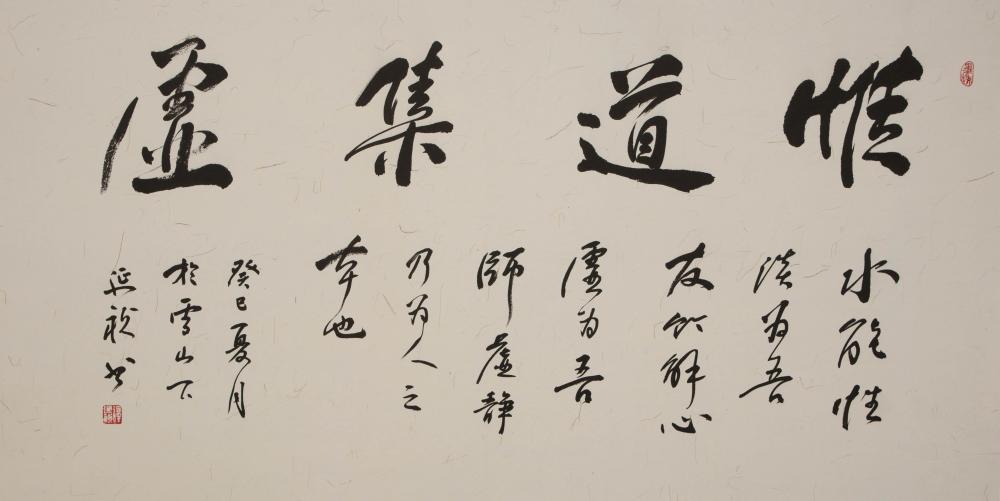 惟道集虛
水能性
淡為吾
友竹解心
虛為吾
師虛静
乃為人之
本也
癸巳夏月
於雪山下
延 書